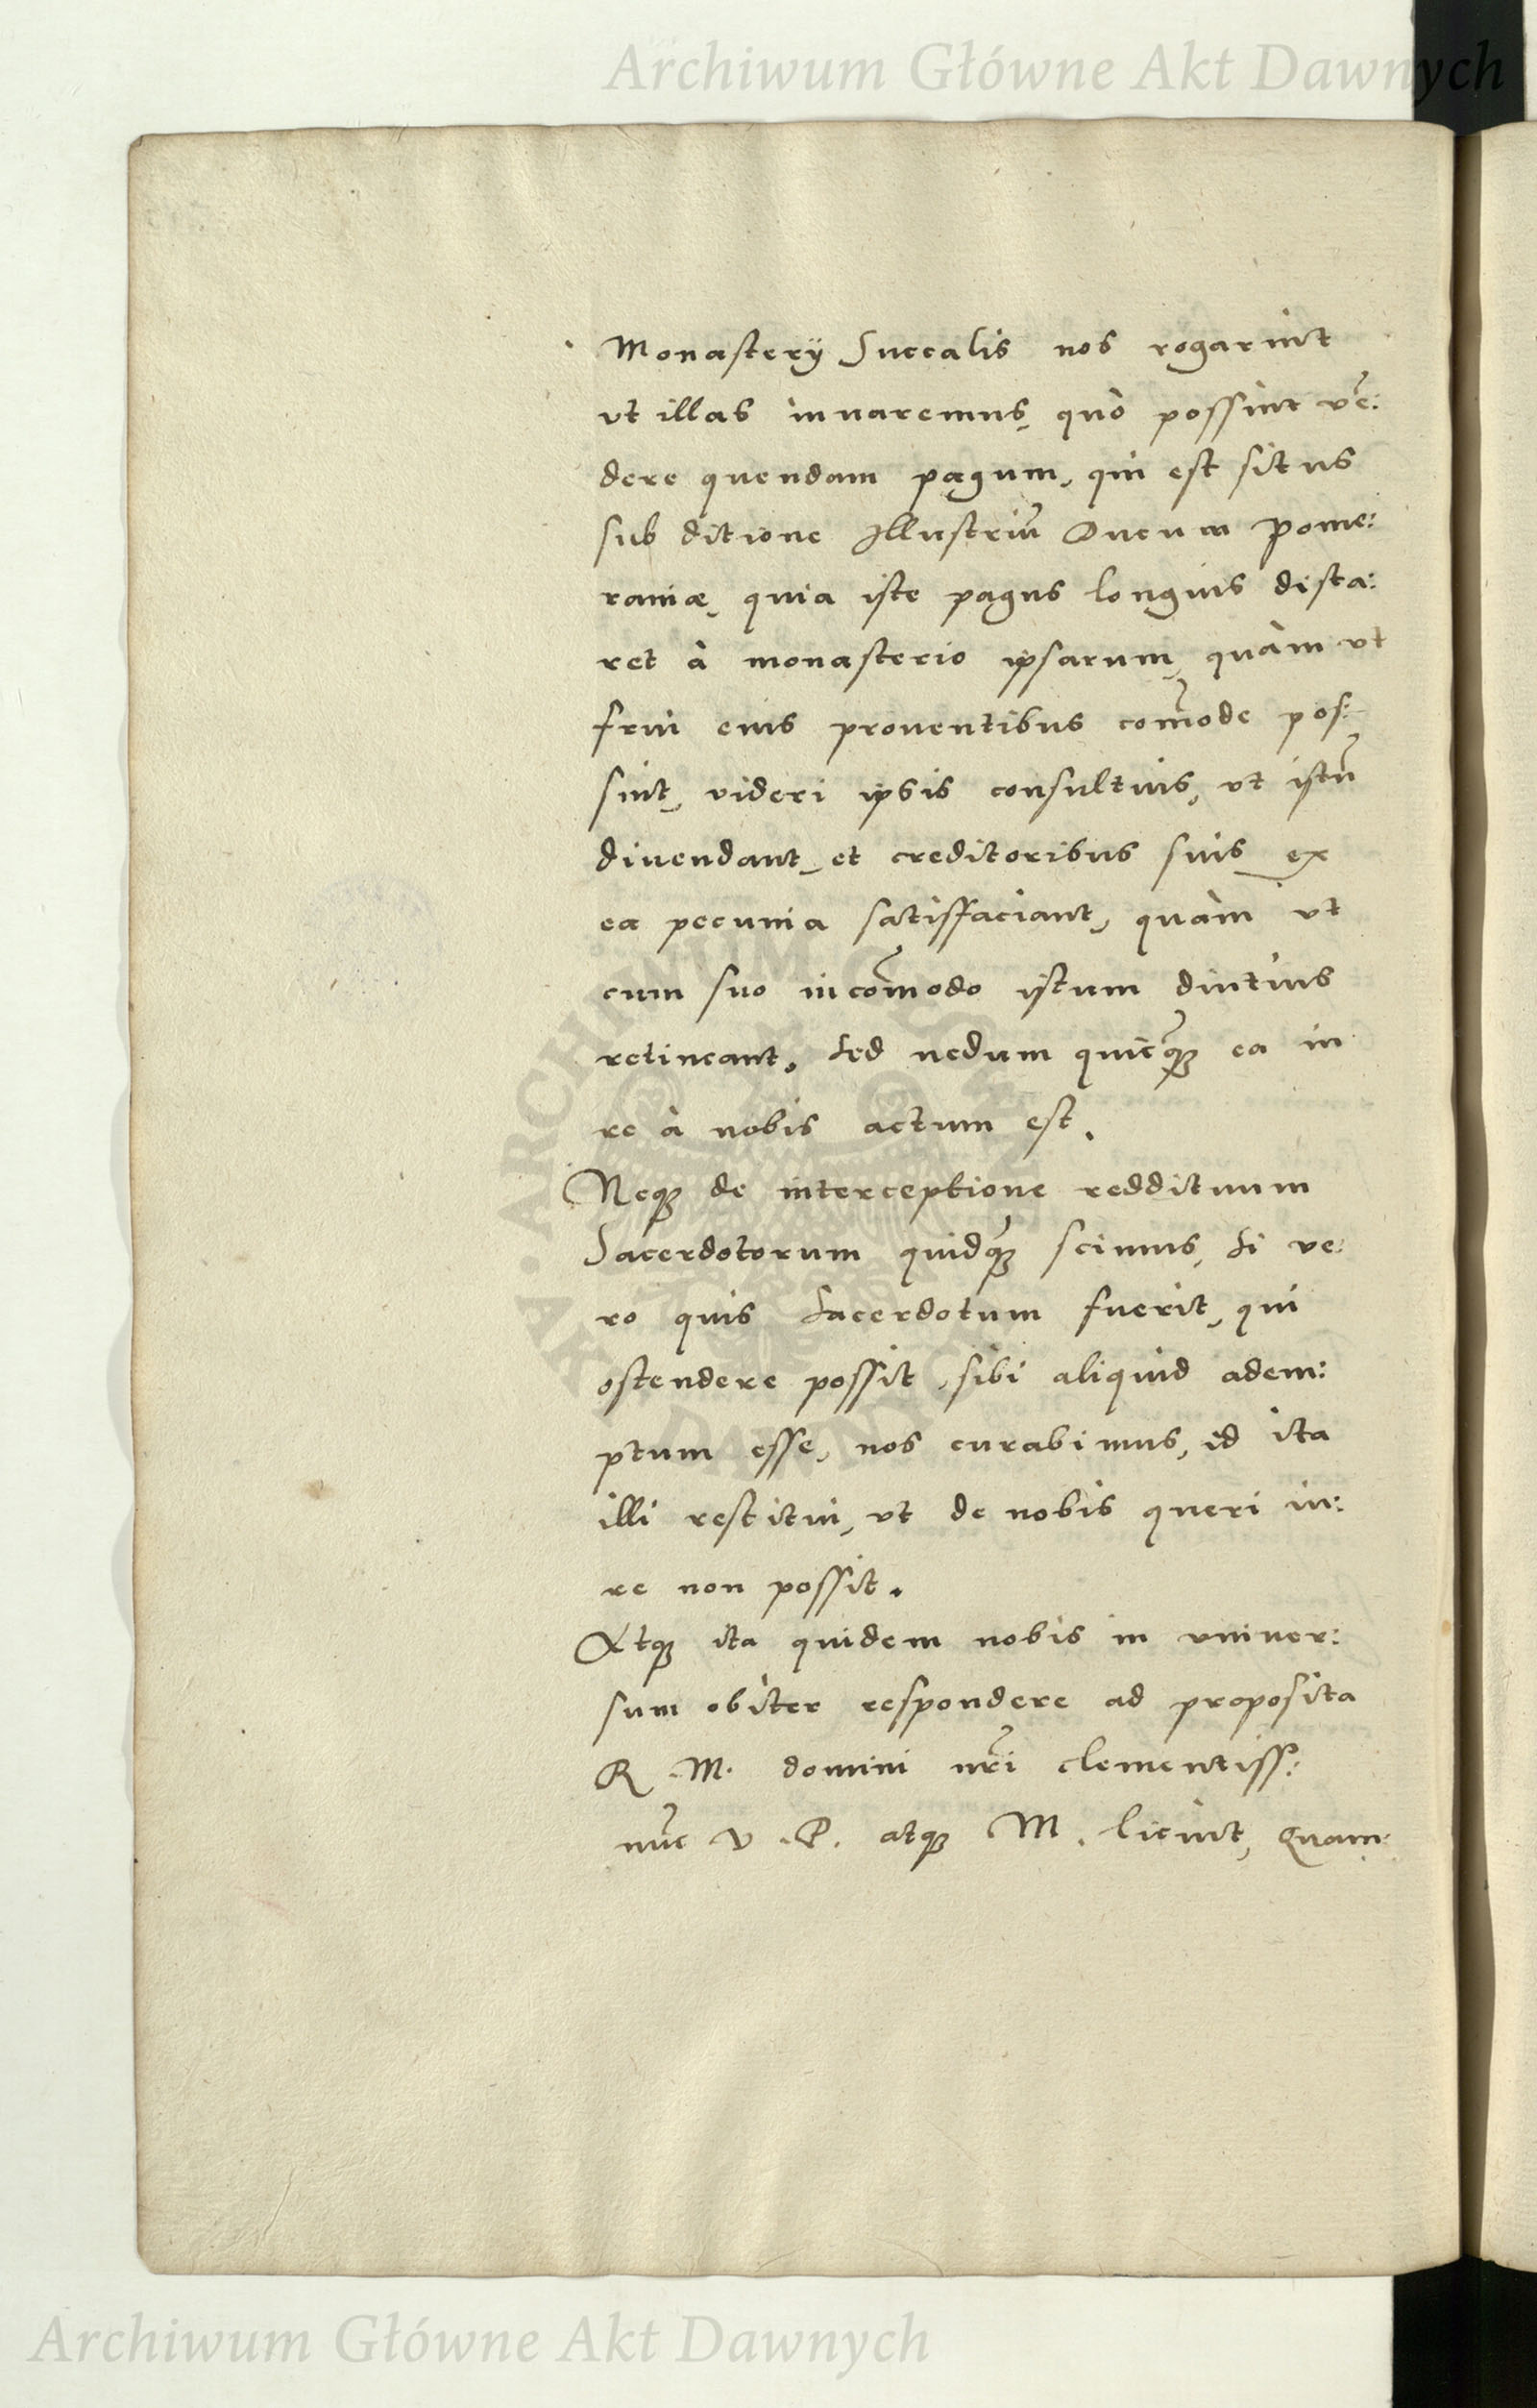 Archiwum Główne Akt Dawnych
Monasterÿ Succalis nos rogarint
vt illas iuuaremus, quò possint vē:
dere quendam pagum, qui est situs
sub ditione Illustriū Ducum Pome:
raniæ, quia iste pagus longius dista:
ret à monasterio ipsarum, quàm vt
frui eius prouentibus com̃ode pos:
sint, videri ipsis consultius, vt istū
diuendant, et creditoribus suis ex
ea pecunia satisfaciant, quàm vt
cum suo incom̃odo istum diutius
retineant. Sed nedum quicq̃ꝫ ea in
re à nobis actum est.
Neqꝫ de interceptione reddituum
Sacerdotorum quidq̃ꝫ scimus, Si ve:
ro quis Sacerdotum fuerit, qui
ostendere possit, sibi aliquid adem:
ptum esse, nos curabimus, id ita
illi restitui, vt de nobis queri iu:
re non possit.
Atqꝫ ita quidem nobis in vniuer:
sum obiter respondere ad proposita
R. M. domini nr̃i clementiss:
nūc V. P. atqꝫ M. licuit, Quam:
ARCHIWUM GŁÓWNE AKT DAWNYCH
Archiwum Główne Akt Dawnych